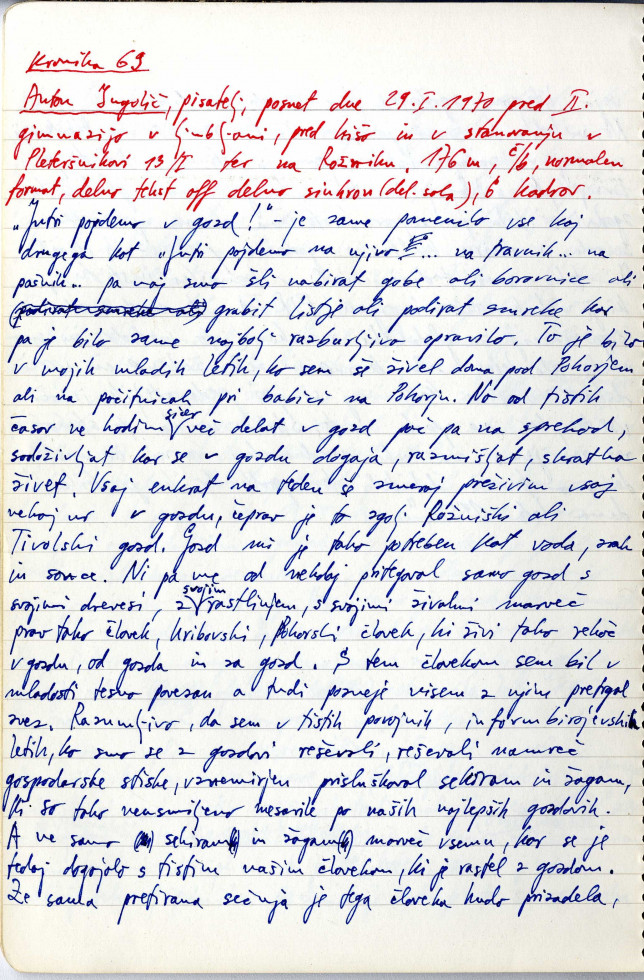 Kronika 69
Anton Ingolič, pisatelj, posnet dne 29. I. 1970 pred II.
gimnazijo v Ljubljani, pred hišo in v stanovanju v
Pleteršnikovi 13/I ter na Rožniku. 176 m, č/b, normalen
format, delno tekst off delno sinhron (del. sola), 6 kadrov.
"Jutri pojdemo v gozd!" - je zame pomenilo vse kaj
drugega kot "Jutri pojdemo na njivo ... na travnik... na
pašnik.. pa naj smo šli nabirat gobe ali borovnice ali
(podirat smreke ali) grabit listje ali podirat smreke kar
pa je bilo zame najbolj razburljivo opravilo. To je bilo
v mojih mladih letih, ko sem še živel doma pod Pohorjem
ali na počitnicah pri babici na Pohorju. No od tistih
časov ne hodim sicer več delat v gozd pač pa na sprehod,
sodoživljat kar se v gozdu dogaja, razmišljat, skratka
živet. Vsaj enkrat na teden še zmeraj preživim vsaj
nekaj ur v gozdu, čeprav je to zgolj Rožniški ali
Tivolski gozd. Gozd mi je tako potreben kot voda, zrak
in sonce. Ni pa me od nekdaj pritegoval samo gozd s
svojimi drevesi, z svojim rastlinjem, s svojimi živalmi marveč
prav tako človek, hribovski, Pohorski človek, ki živi tako rekoč
v gozdu, od gozda in za gozd. S tem človekom sem bil v
mladosti tesno povezan a tudi pozneje nisem z njim pretrgal
zvez. Razumljivo, da sem v tistih povojnih, informbirojevskih
letih, ko smo se z gozdovi reševali, reševali namreč
gospodarske stiske, vznemirjen prisluškoval sekiram in žagam,
ki so tako neusmiljeno mesarile po naših najlepših gozdovih.
A ne samo sekiram in žagam marveč vsemu, kar se je
tedaj dogajalo s tistim našim človekom, ki je rastel z gozdom.
Že sama pretirana sečnja je tega človeka hudo prizadela,